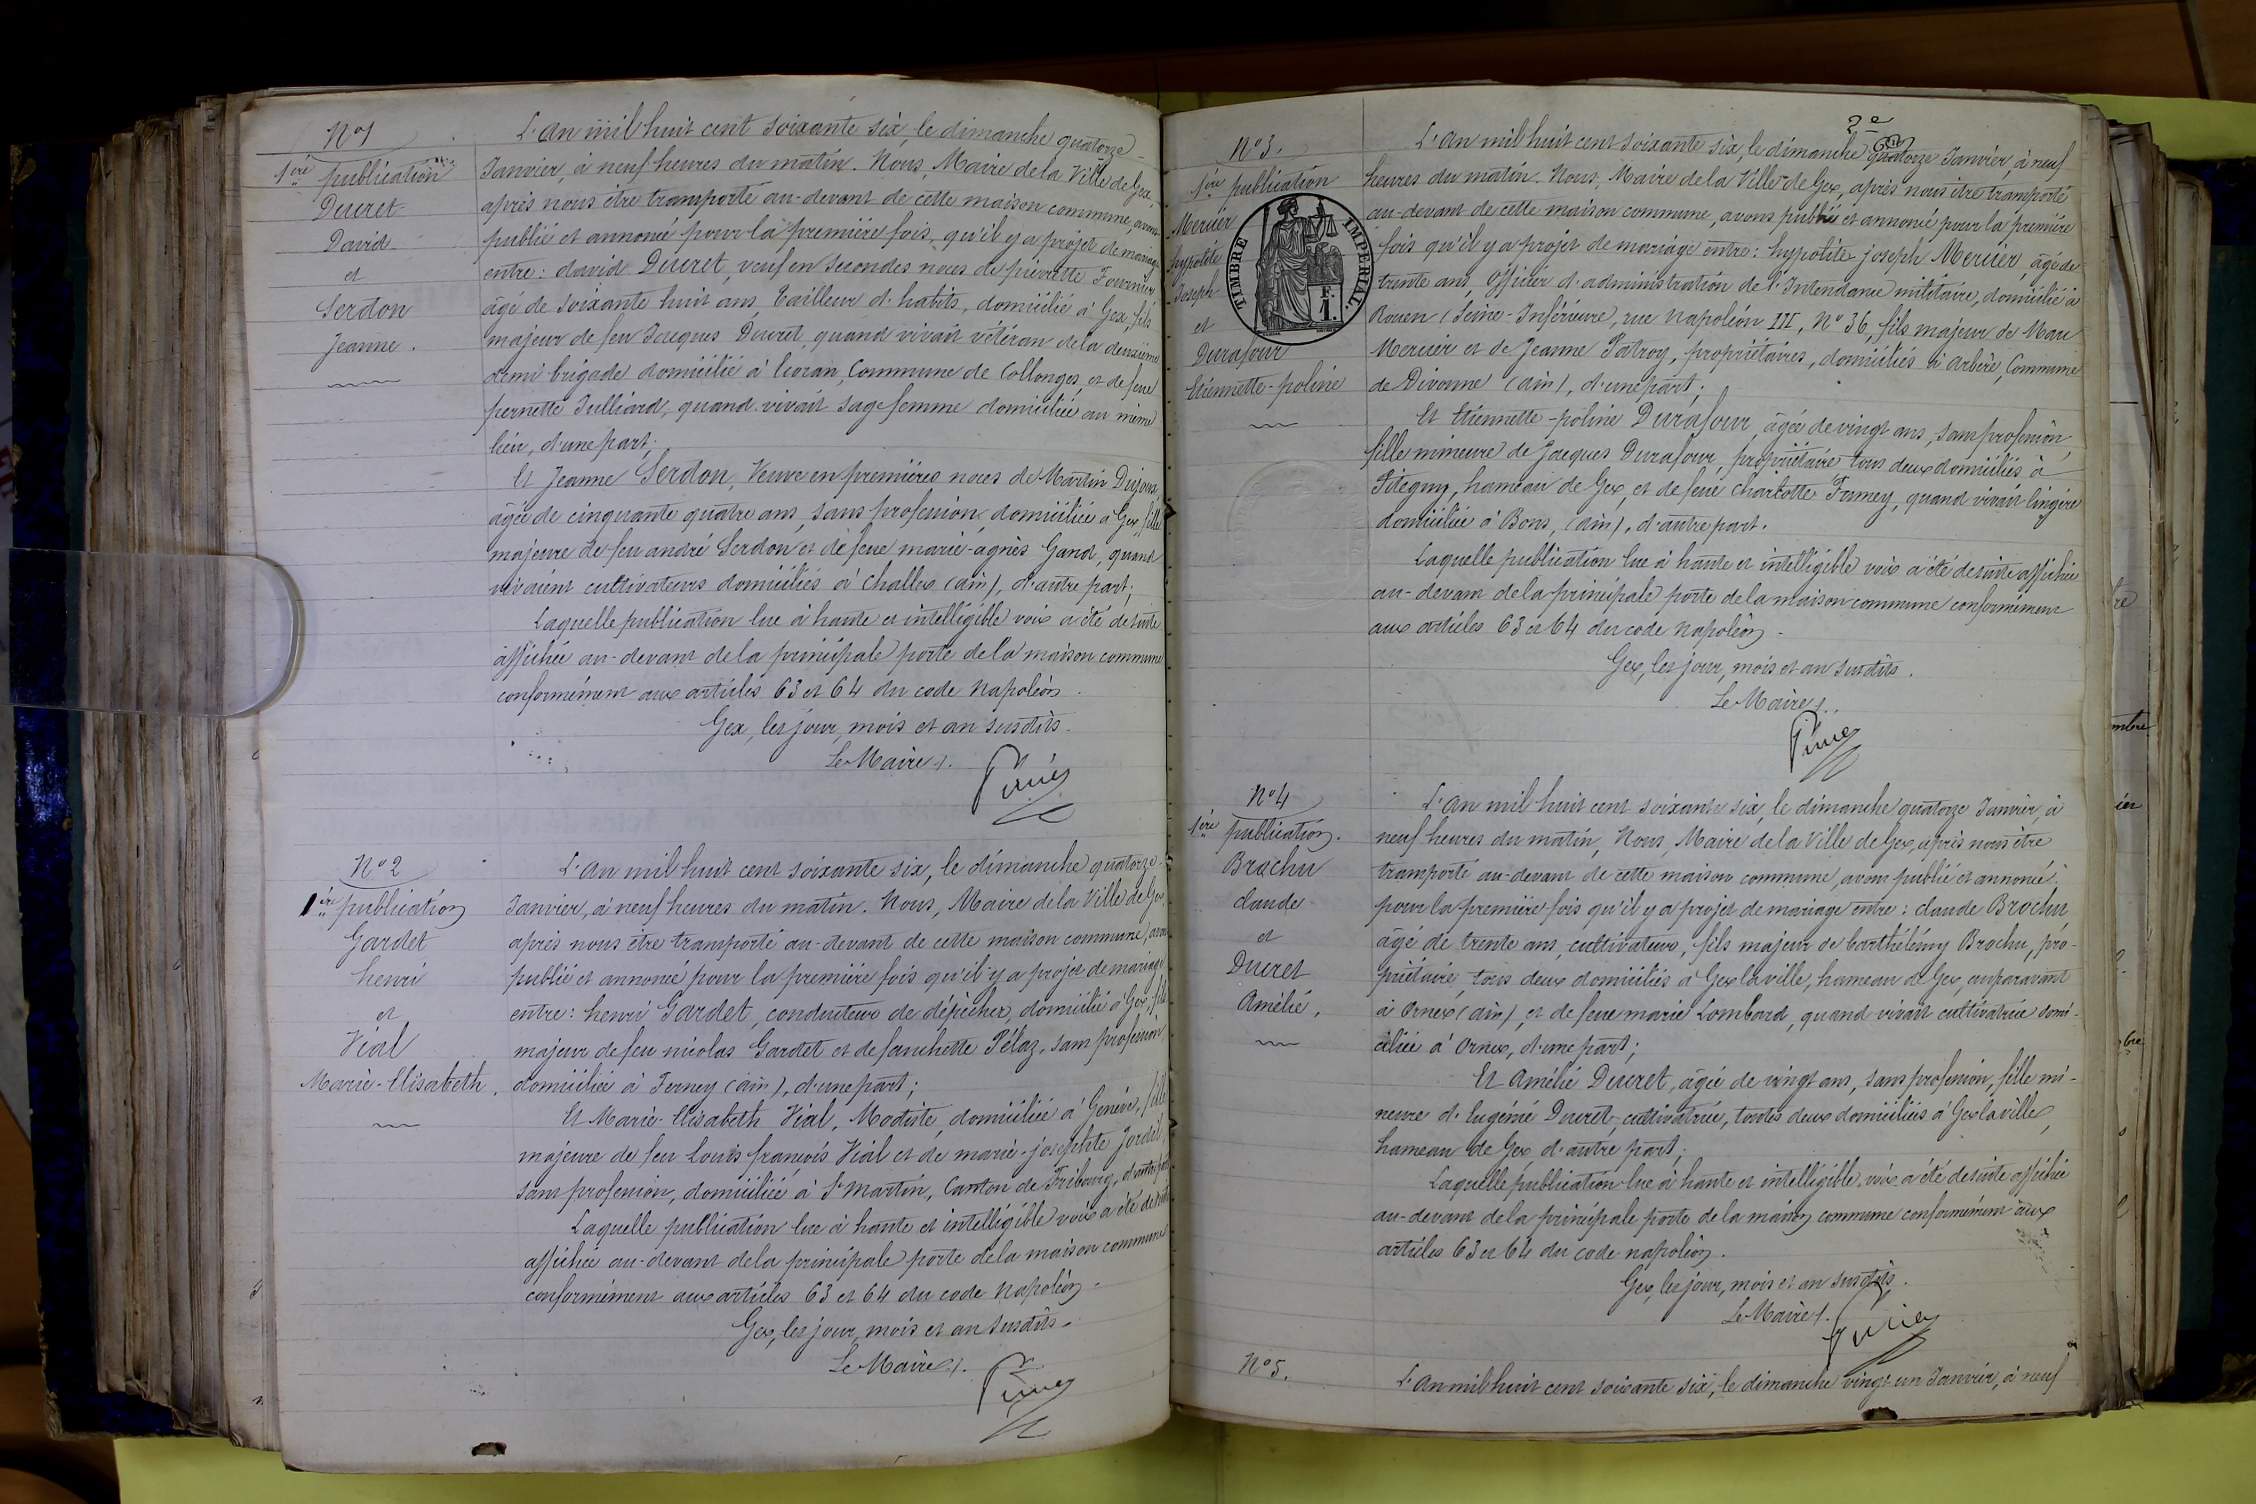 N° 1
1ère publication
Ducret
David
et
Serdon
Jeanne.
L'an mil huit cent soixante six, le dimanche quatorze
Janvier, à neuf heures du matin. Nous, Maire de la Ville de Gex,
après nous être transporté au-devant de cette maison commune, avons
publié et annoncé pour la première fois, qu'il y a projet de mariage
entre: david Ducret, veuf en secondes noces de pierrette Fournier
âgé de soixante huit ans, tailleur d'habits, domicilié à Gex, fils
majeur de feu Jacques Ducret, quand vivait vétéran de la deuxième
demi brigade domicilié à Ecoran, Commune de Collonges, et de feue
pernette Julliard, quand vivait sage femme domiciliée au même
lieu, d'une part;
Et Jeanne Serdon, Veuve en premières noces de Martin
âgée de cinquante quatre ans, sans profession, domiciliée à Gex, fille
majeure de feu andré Serdon et de feue marie-agnès Gand, quand
vivaient cultivateurs domiciliés à Challex (ain), d'autre part;
Laquelle publication lue à haute et intelligible voix a été de suite
affichée au-devant de la principale porte de la maison commune
conformément aux articles 63 et 64 du code Napoléon.
Gex, les jour, mois et an susdits.
Le Maire
N° 2
1ère publication
Gardet
henri
et
Vial
Marie-Elisabeth.
L'an mil huit cent soixante six, le dimanche quatorze
Janvier, à neuf heures du matin. Nous, Maire de la Ville de Gex,
après nous être transporté au-devant de cette maison commune, avons
publié et annoncé pour la première fois qu'il y a projet de mariage
entre: henri Gardet, conducteur de dépêches, domicilié à Gex, fils
majeur de feu nicolas Gardet et de fanchette Pélaz, sans profession,
domiciliée à Ferney (ain), d'une part;
Et Marie-Elisabeth Vial, Modiste, domiciliée à Genève, fille
majeure de feu Louis françois Vial et de marie-josephte Jordil,
sans profession, domiciliée à St Martin, Canton de Fribourg, d'autre part
Laquelle publication lue à haute et intelligible voix a été de suite
affichée au-devant de la principale porte de la maison commune
conformément aux articles 63 et 64 du code Napoléon.
Gex, les jour, mois et an susdits.
Le Maire
N° 3.
1ère publication
Mercier
hypolite
Joseph
et
Durafour
Etiennette-poline
TIMBRE IMPERIAL
1 F.
2e
L'an mil huit cent soixante six, le dimanche quatorze Janvier, à neuf
heures du matin. Nous, Maire de la Ville de Gex, après nous être transporté
au-devant de cette maison commune, avons publié et annoncé pour la première
fois qu'il y a projet de mariage entre: hypolite joseph Mercier, âgé de
trente ans, Officier d'administration de l'Intendance militaire, domicilié à
Rouen (Seine-Inférieure, rue Napoléon III, N° 36, fils majeur de
Mercier et de Jeanne Patroy, propriétaires, domiciliés à Arbère, Commune
de Divonne (ain), d'une part;
Et Etiennette-poline Durafour, âgée de vingt ans, sans profession,
fille mineure de Jacques Durafour, propriétaire tous deux domiciliés à
Pitegny, hameau de Gex, et de feue Charlotte Fumey, quand vivait lingère
domiciliée à Bons, (ain), d'autre part.
Laquelle publication lue à haute et intelligible voix a été de suite affichée
au-devant de la principale porte de la maison commune conformément
aux articles 63 et 64 du code Napoléon.
Gex, les jour, mois et an susdits.
Le Maire
N° 4
1ère publication.
Brochu
claude
et
Ducret
Amélie.
L'an mil huit cent soixante six, le dimanche quatorze Janvier, à
neuf heures du matin, Nous, Maire de la Ville de Gex, après nous être
transporté au-devant de cette maison commune, avons publié et annoncé
pour la première fois qu'il y a projet de mariage entre: claude Brochu
âgé de trente ans, cultivateur, fils majeur de barthélémy Brochu, pro-
priétaire, tous deux domiciliés à Gex la ville, hameau de Gex, auparavant
à Ornex (ain), et de feue marie Lombard, quand vivait cultivatrice domi-
ciliée à Ornex, d'une part;
Et Amélie Ducret, âgée de vingt ans, sans profession, fille mi-
neure d'Eugénie Ducret, cultivatrice, toutes deux domiciliées à Gex la ville,
hameau de Gex, d'autre part;
Laquelle publication lue à haute et intelligible voix a été de suite affichée
au-devant de la principale porte de la maison commune conformément aux
articles 63 et 64 du code napoléon.
Gex, les jour, mois et an susdits.
Le Maire
N° 5.
L'an mil huit cent soixante six, le dimanche vingt-un Janvier, à neuf